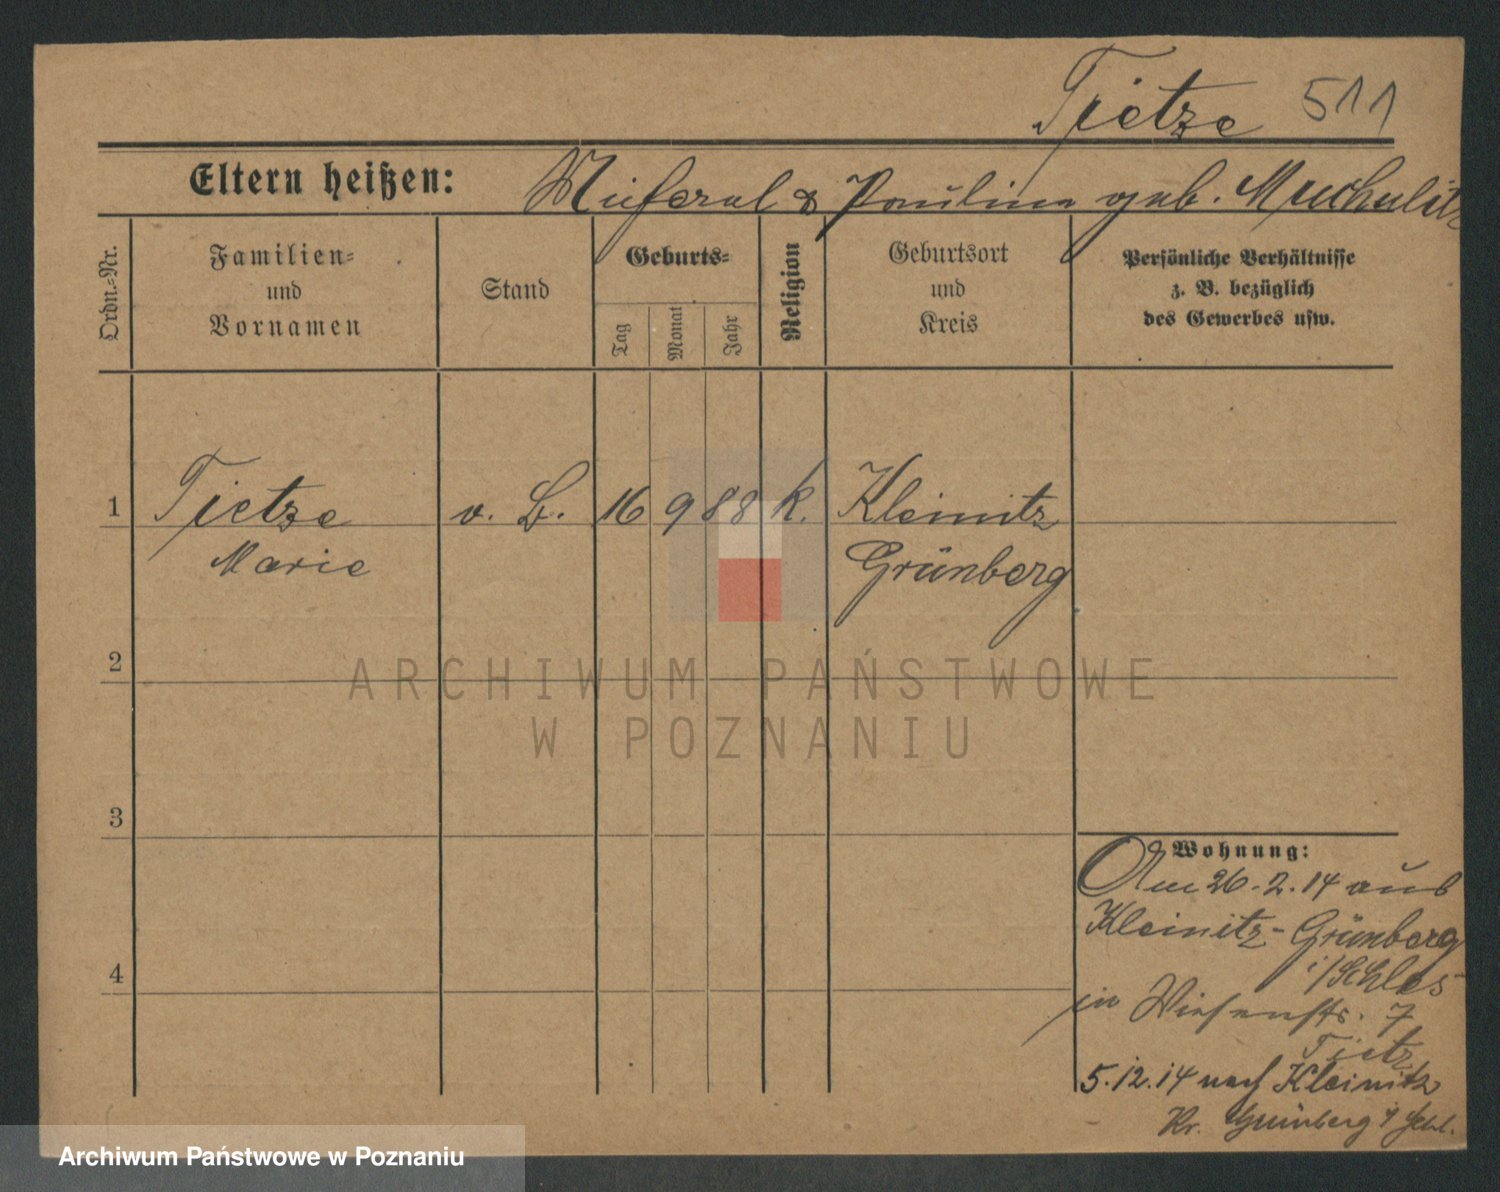 Tietze 511
Eltern heißen: & Paulina geb.
Ordn.-Nr.
Familien-
und
Vornamen
Stand
Geburts-
Tag
Monat
Jahr
Religion
Geburtsort
und
Kreis
Persönliche Verhältnisse
z. B. bezüglich
des Gewerbes usw.
1 Tietze v. B. 16 9 88 k. Kleinitz
Marie Grünberg
2
ARCHIWUM PAŃSTWOWE
W POZNANIU
3
Wohnung:
Am 26.2.14 aus
Kleinitz-Grünberg
i/Schles
4
in Wiesenstr. 7
Tietz
5.12.14 nach Kleinitz
Kr. Grünberg i/Schl.
Archiwum Państwowe w Poznaniu